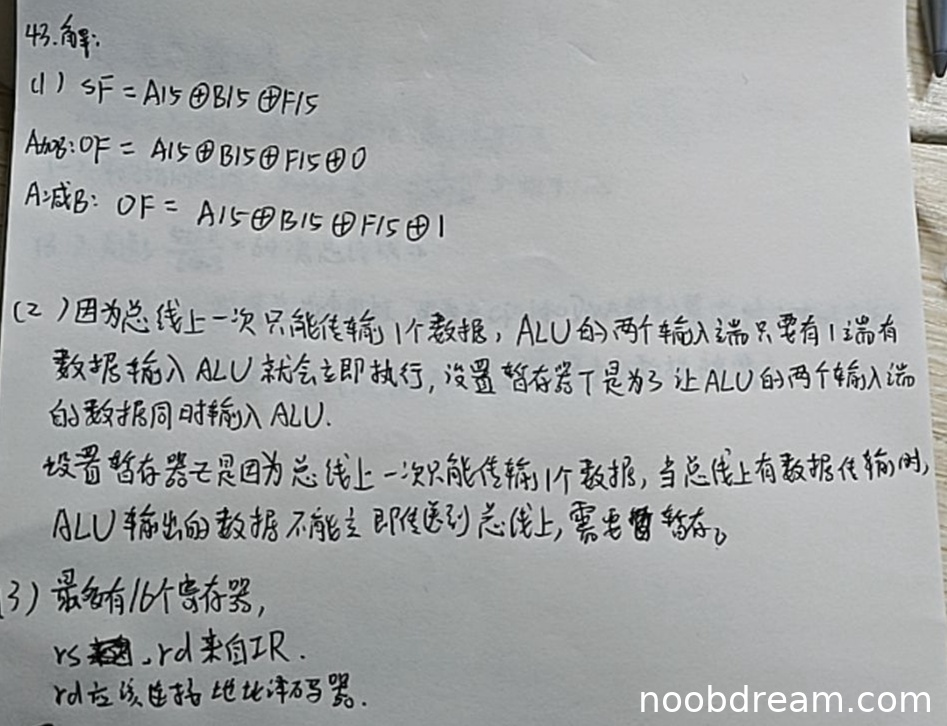 43.解:
(1) SF = A15⊕B15⊕F15
A加B: OF = A15⊕B15⊕F15⊕0
A减B: OF = A15⊕B15⊕F15⊕1
(2)因为总线上一次只能传输1个数据,ALU的两个输入端只要有1端有
数据输入ALU就会立即执行,设置暂存器T是为了让ALU的两个输入端
的数据同时输入ALU.
设置暂存器Z是因为总线上一次只能传输1个数据,当总线上有数据传输时,
ALU输出的数据不能立即传送到总线上,需要暂存。
3)最多有16个寄存器,
rs、rd来自IR.
rd应该连接地址译码器.
noobdream.com